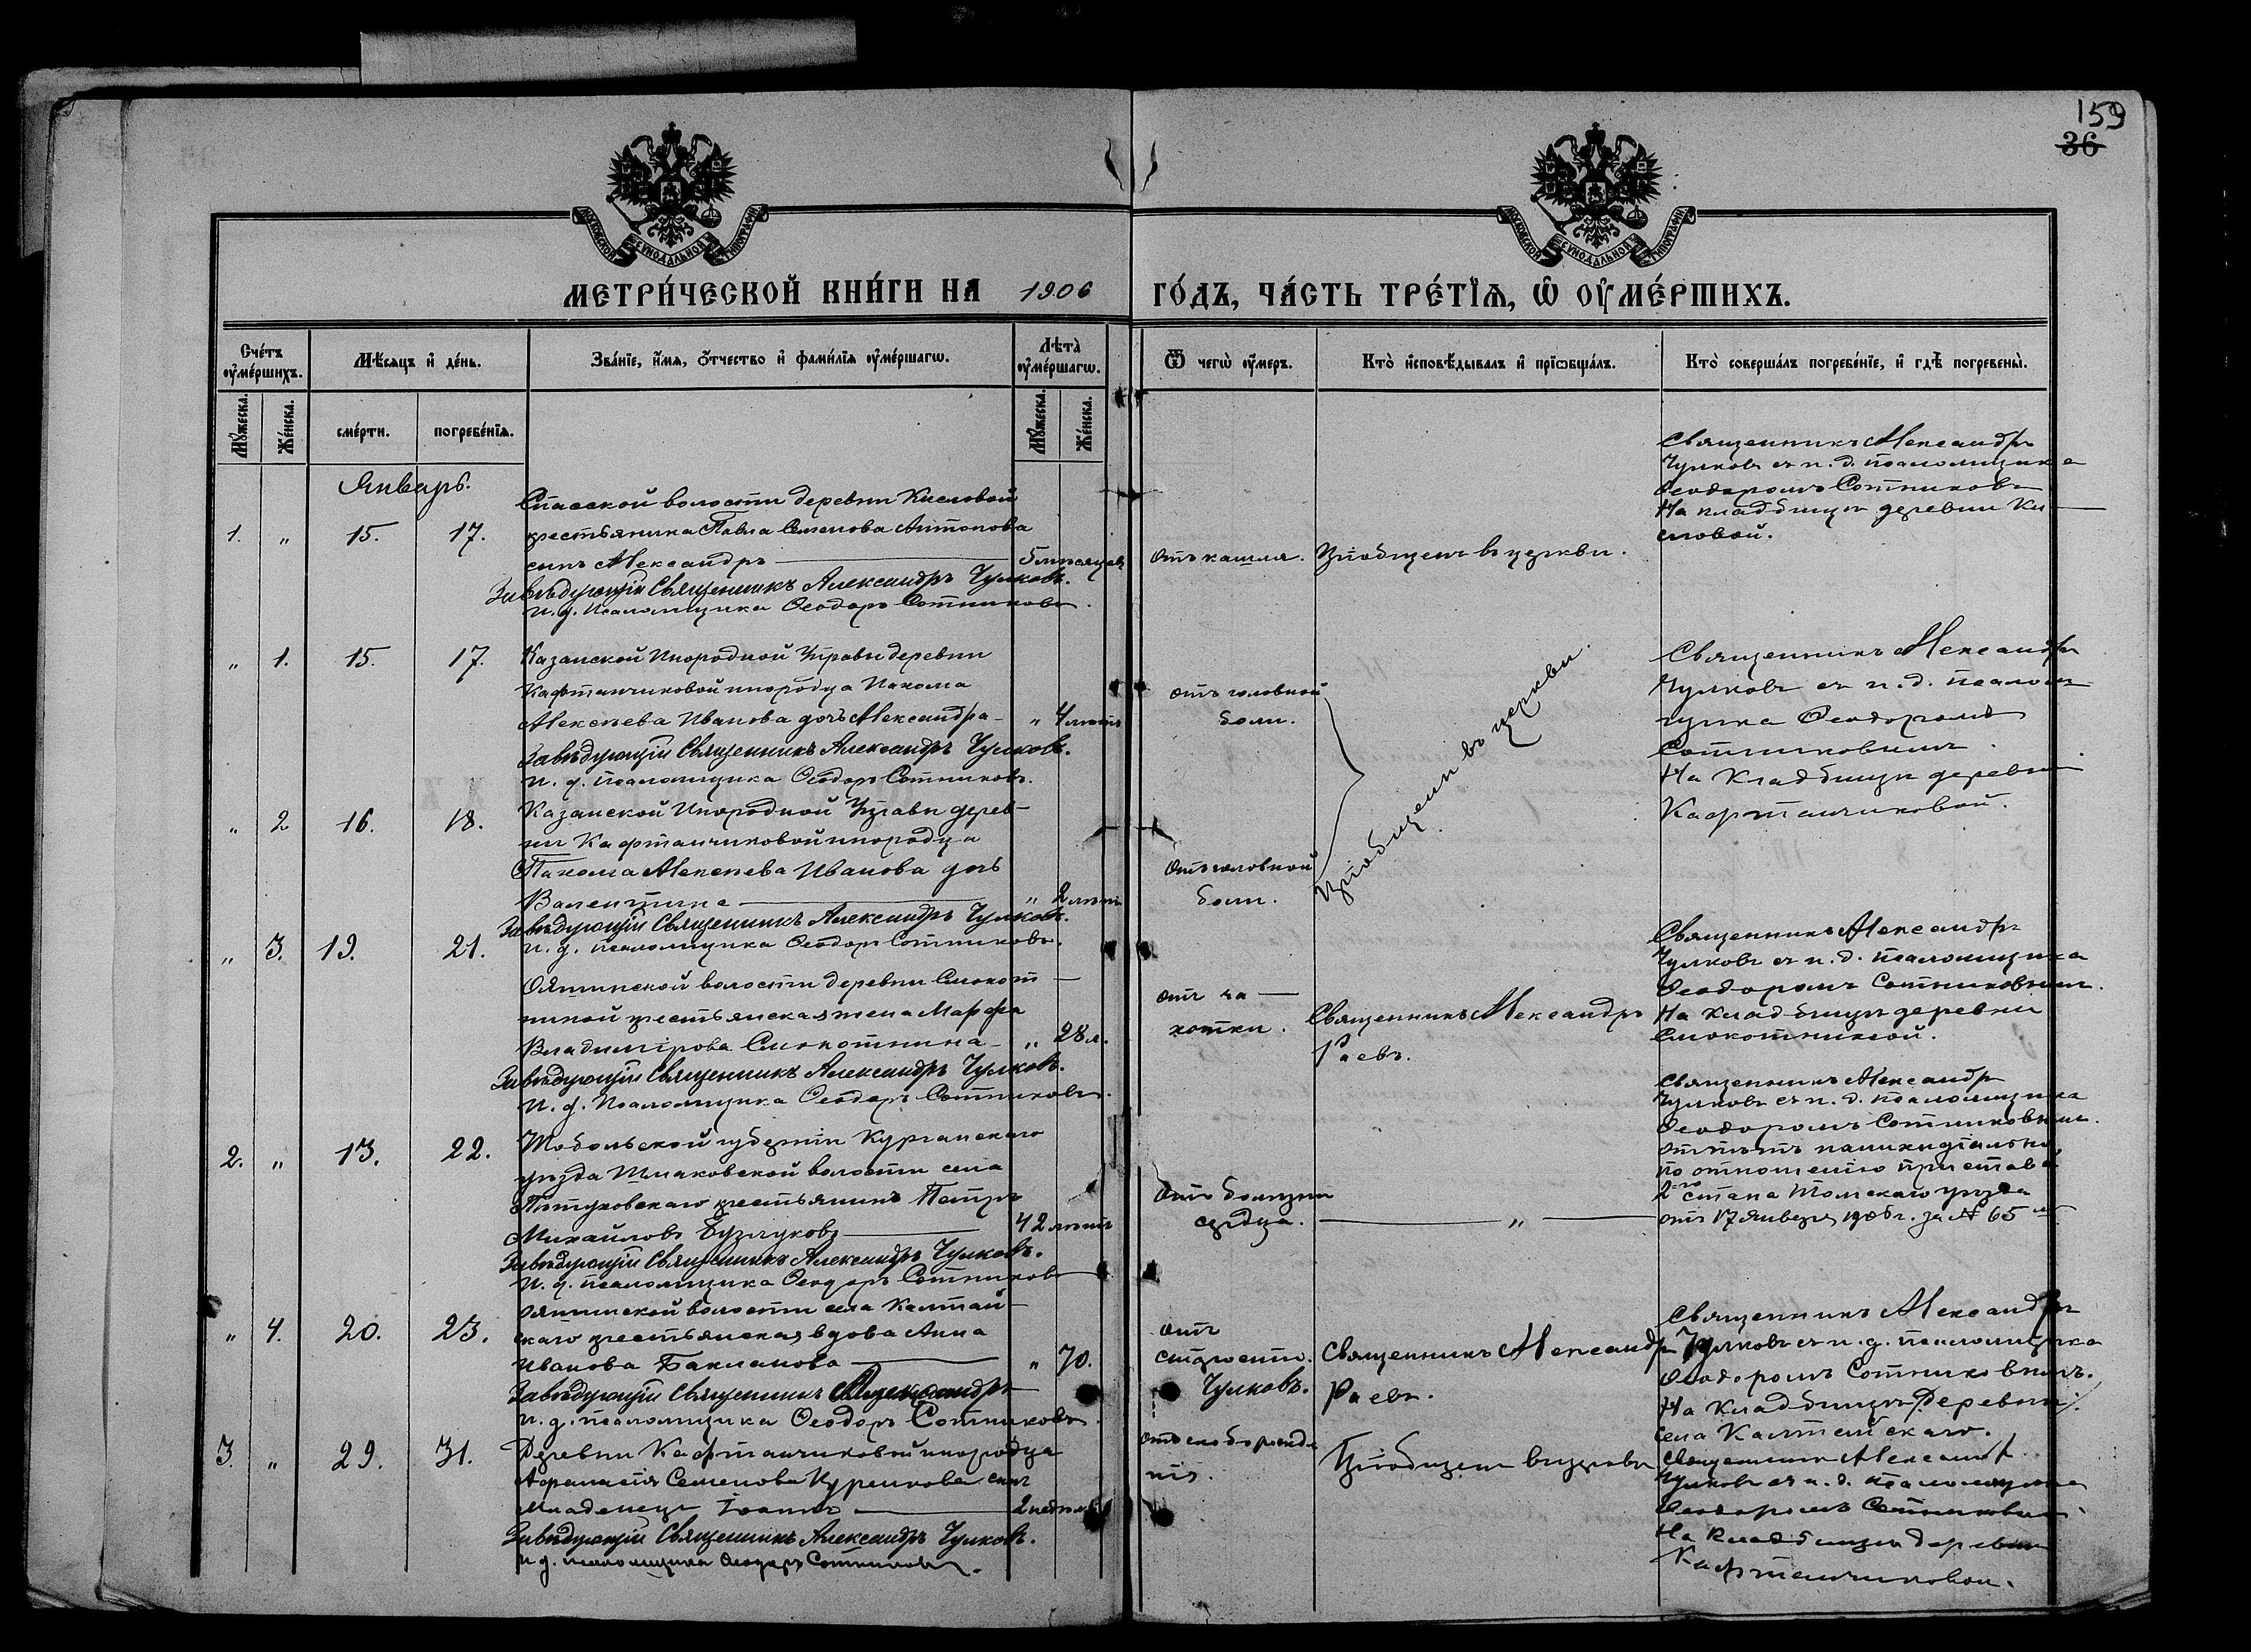 159
36
МОСКОВСКОЙ СѴНОДАЛЬНОЙ ТИПОГРАФІИ
МОСКОВСКОЙ СѴНОДАЛЬНОЙ ТИПОГРАФІИ
МЕТРИ́ЧЕСКОЙ КНИ́ГИ НА 1906 ГО́ДЪ, ЧА́СТЬ ТРЕ́ТЇѦ, Ѡ҆ ОУ҆МЕ́РШИХЪ.
Счéтъ оу҆мéршихъ.
Мѣ́сяцъ и҆ дéнь.
Звáнїе, и҆́мѧ, ѻ҆́тчество и҆ фамѝлїѧ оу҆мéршагѡ.
Лѣтà оу҆мéршагѡ.
Ѿ чегѡ̀ оу҆́меръ.
Ктò и҆сповѣ́дывалъ и҆ прїѡбщáлъ.
Ктò совершáлъ погребéнїе, и҆ гдѣ̀ погребены̀.
Мꙋ́жеска.
Жéнска.
смéрти.
погребéнїѧ.
Мꙋ́жеска.
Жéнска.
Январь.
1. " 15. 17.
Спасской волости деревни Кисловой
крестьянина Павла Семенова Антонова
сынъ Александръ 5 мѣсяцевъ
Завѣдующій Священникъ Александръ Чулковъ.
И. д. псаломщика Ѳеодоръ Сотниковъ.
Отъ кашля.
Пріобщенъ въ церкви.
Священникъ Александръ
Чулковъ съ и. д. псаломщика
Ѳеодоромъ Сотников
На кладбищѣ деревни Ки-
словой.
" 1. 15. 17.
Казанской Инородной Управы деревни
Кафтанчиковой инородца Пахома
Алексѣева Иванова дочь Александра " 4 лѣтъ
Завѣдующій Священникъ Александръ Чулковъ.
И. д. псаломщика Ѳеодоръ Сотниковъ.
Отъ головной
боли.
Пріобщены въ церкви.
Священникъ Александръ
Чулковъ съ и. д. псалом-
щика Ѳеодоромъ
Сотниковымъ.
На Кладбищѣ деревни
Кафтанчиковой.
" 2 16. 18.
Казанской Инородной Управы дерев-
ни Кафтанчиковой инородца
Пахома Алексѣева Иванова дочь
Валентина " 2 лѣтъ
Завѣдующій Священникъ Александръ Чулковъ.
И. д. псаломщика Ѳеодоръ Сотниковъ.
Отъ головной
боли.
" 3. 19. 21.
Ояшинской волости деревни Смокот-
ниной крестьянская жена Марфа
Владимірова Смокотнина " 28 л.
Завѣдующій Священникъ Александръ Чулковъ.
И. д. Псаломщика Ѳеодоръ Сотниковъ.
Отъ ча-
хотки.
Священникъ Александръ
Раевъ.
Священникъ Александръ
Чулковъ съ и. д. псаломщика
Ѳеодоромъ Сотниковымъ.
На кладбищѣ деревни
Смокотниной.
2. " 13. 22.
Тобольской губерніи Курганскаго
уѣзда Шмаковской волости села
Пѣтуховскаго крестьянинъ Петръ
Михайловъ Бузлуковъ 42 лѣтъ
Завѣдующій Священникъ Александръ Чулковъ.
И. д. псаломщика Ѳеодоръ Сотниковъ
Отъ болѣзни
сердца.
"
Священникъ Александръ
Чулковъ съ и. д. псаломщика
Ѳеодоромъ Сотниковымъ.
по отношенію пристава
2го стана Томскаго уѣзда
отъ 17 Января 1906 г. за № 65
" 4. 20. 23.
Ояшинской волости села Калтай-
скаго крестьянская вдова Анна
Иванова Бакланова " 70.
Завѣдующій Священникъ Александръ Чулковъ.
И. д. псаломщика Ѳеодоръ Сотниковъ
Отъ
старости.
Священникъ Александръ
Раевъ.
Священникъ Александръ
Чулковъ съ и. д. псаломщика
Ѳеодоромъ Сотниковымъ.
На Кладбищѣ Деревни
села Калтайскаго.
3. " 29. 31.
Деревни Кафтанчиковой инородца
Аѳанасія Семенова Куренкова сынъ
Младенецъ Іоаннъ 2 недѣль
Завѣдующій Священникъ Александръ Чулковъ.
И. д. псаломщика Ѳеодоръ Сотниковъ.
Пріобщенъ въ церкви
Священникъ Александръ
Чулковъ съ и. д. псаломщика
Ѳеодоромъ Сотниковымъ
На Кладбищѣ деревни
Кафтанчиковой.